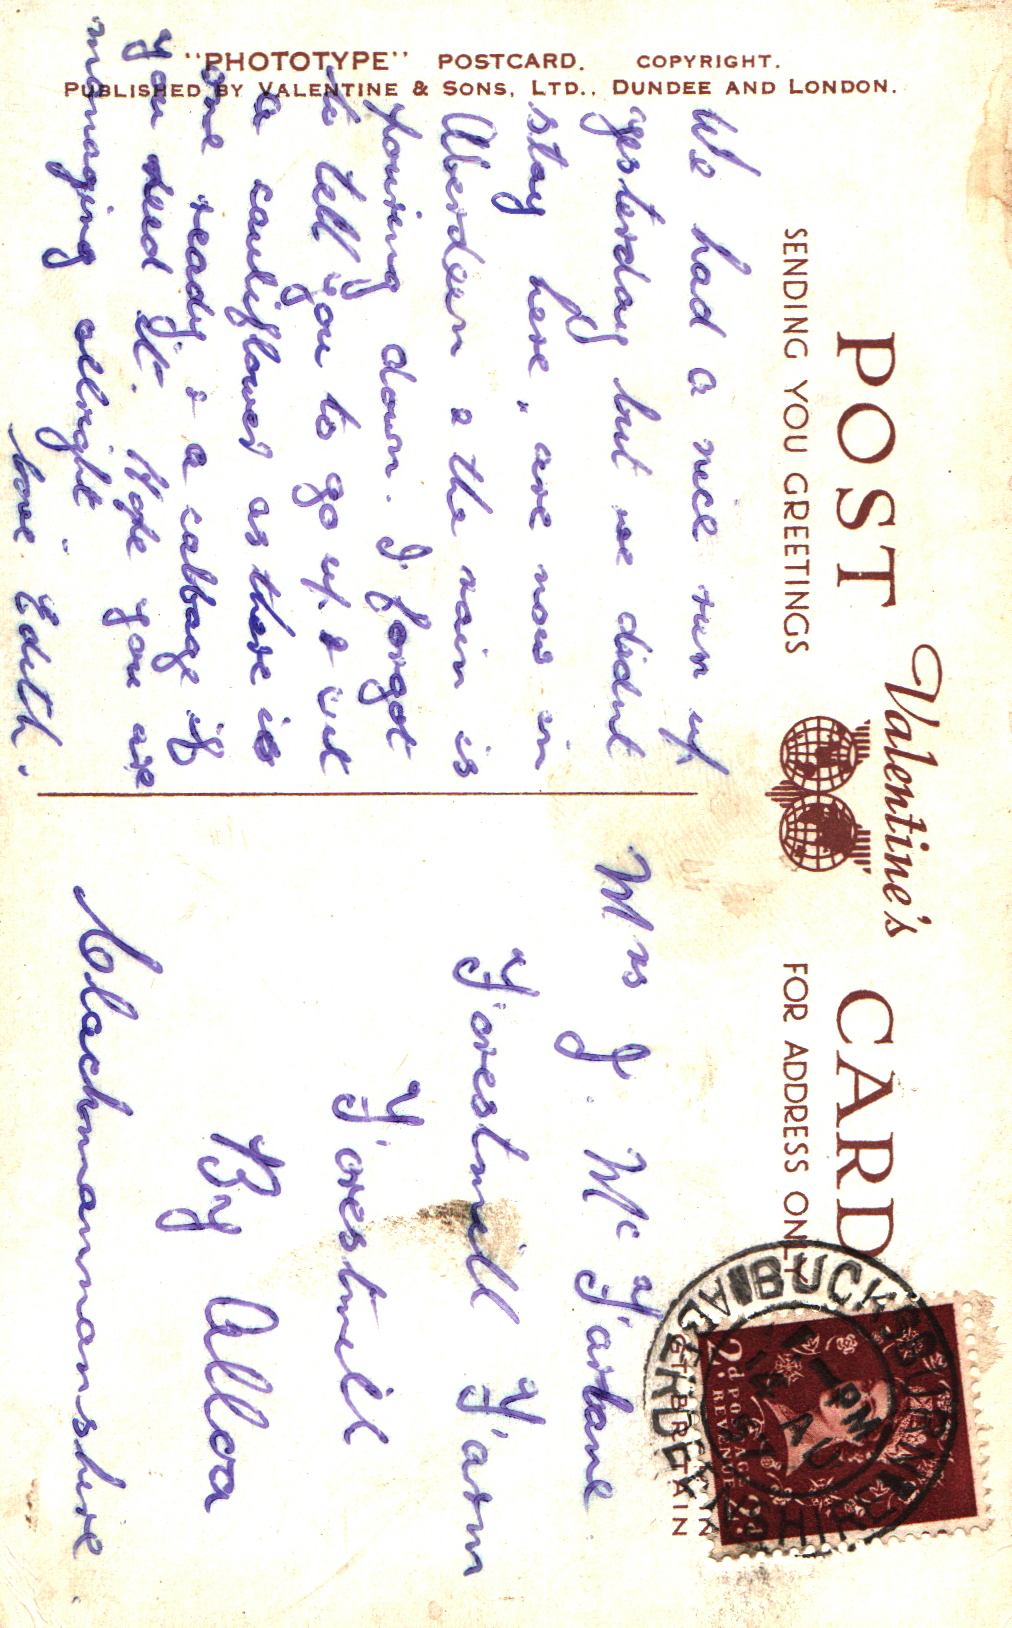 "PHOTOTYPE" POSTCARD. COPYRIGHT.
PUBLISHED BY VALENTINE & SONS, LTD., DUNDEE AND LONDON.
POST CARD
Valentine's
SENDING YOU GREETINGS
FOR ADDRESS ONLY
We had a nice run up
yesterday but we didnt
stay here, are now in
Aberdeen & the rain is
pouring down. I forgot
to tell you to go up & cut
a cauliflower as there is
one ready & a cabbage if
you need it. Hope you are
managing allright
Love Edith.
Mrs J. McFarlane
Forestmill Farm
Forestmill
By Alloa
Clackmannanshire.
BUCKSBURN
ABERDEENSHIRE
1 PM
AU
2d POSTAGE
REVENUE
GT. BRITAIN